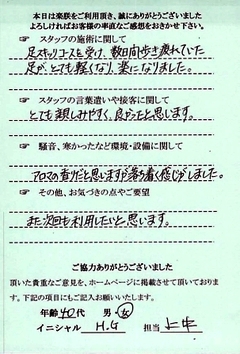 本日は楽朕をご利用頂き、誠にありがとうございました
よろしければお客様の率直なご感想をおきかせ下さい。
☞ スタッフの施術に関して
足スッキリコースを受け、数日間歩き疲れていた
足が、とても軽くなり、楽になりました。
☞ スタッフの言葉遣いや接客に関して
とても親しみやすく、良かったと思います。
☞ 騒音、寒かったなど環境・設備に関して
アロマの香だと思いますが落ち着く感じがしました。
☞ その他、お気づきの点やご要望
また次回も利用したいと思います。
ご協力ありがとうございました
頂いた貴重なご意見を、ホームページに掲載させて頂いております。
下記の項目にもご記入お願いいたします。
年齢 40代 男・女
イニシャル H.G 担当 上牛